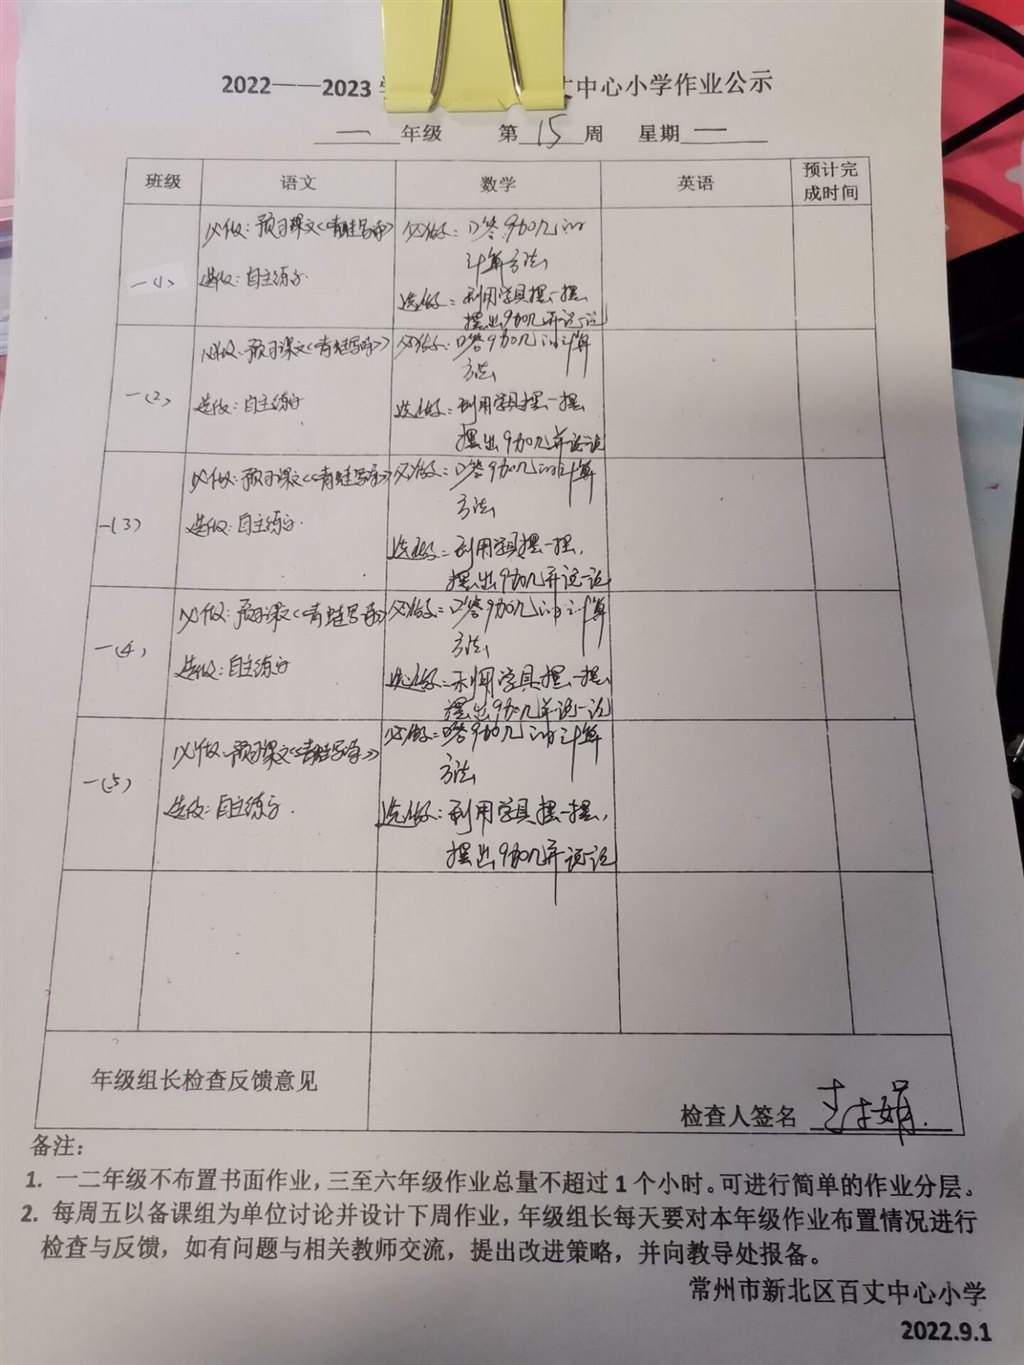 2022——2023 学 丈中心小学作业公示
一 年级 第 15 周 星期 一
班级 语文 数学 英语 预计完成时间
一(1)
必做：预习课文《青蛙写诗》
选做：自主练习.
必做：口答9加几的
计算方法
选做：利用学具摆一摆,
摆出9加几并说一说
一(2)
必做：预习课文《青蛙写诗》
选做：自主练习
必做：口答9加几的计算
方法
选做：利用学具摆一摆
摆出9加几并说一说
一(3)
必做：预习课文《青蛙写诗》
选做：自主练习.
必做：口答9加几的计算
方法
选做：利用学具摆一摆,
摆出9加几并说一说
一(4)
必做：预习课文《青蛙写诗》
选做：自主练习
必做：口答9加几的计算
方法
选做：利用学具摆一摆,
摆出9加几并说一说
一(5)
必做：预习课文《青蛙写诗》
选做：自主练习.
必做：口答9加几的计算
方法
选做：利用学具摆一摆,
摆出9加几并说一说
年级组长检查反馈意见
检查人签名
备注：
1. 一二年级不布置书面作业，三至六年级作业总量不超过1个小时。可进行简单的作业分层。
2. 每周五以备课组为单位讨论并设计下周作业，年级组长每天要对本年级作业布置情况进行
检查与反馈，如有问题与相关教师交流，提出改进策略，并向教导处报备。
常州市新北区百丈中心小学
2022.9.1